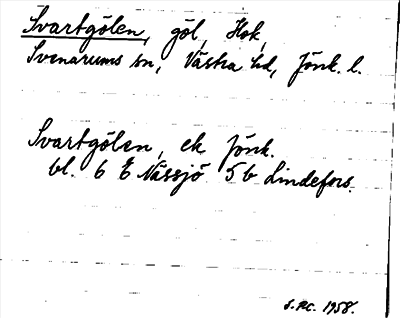 Svartgölen, göl, Hok,
Svenarums sn, Västra hd, Jönk. l.
Svartgölen, ek Jönk.
bl. 6 E Nässjö 5 b Lindefors.
1958.